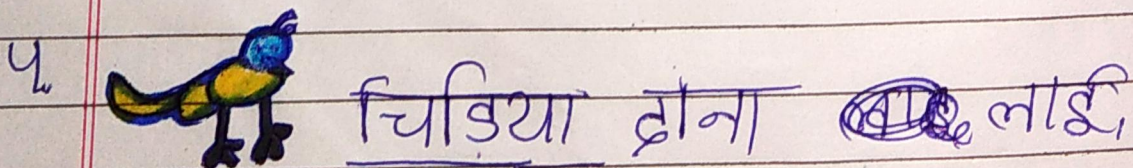 ५. चिडिया दाना लाई,